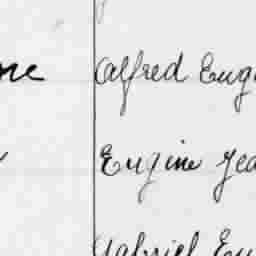 ne Alfred Eug
Engine Jea
Gabriel Eu